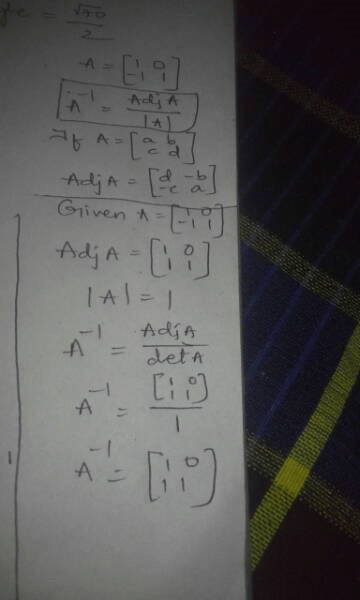 = √40/2
A = [1 0
-1 1]
A⁻¹ = Adj A/|A|
If A = [a b
c d]
Adj A = [d -b
-c a]
Given A = [1 0
-1 1]
Adj A = [1 0
1 1]
|A| = 1
A⁻¹ = Adj A/det A
A⁻¹ = [1 0
1 1]/1
A⁻¹ = [1 0
1 1]